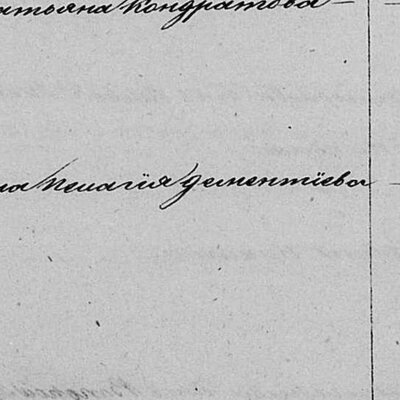 атьяна Кондратова
на Пелагія Дементіева